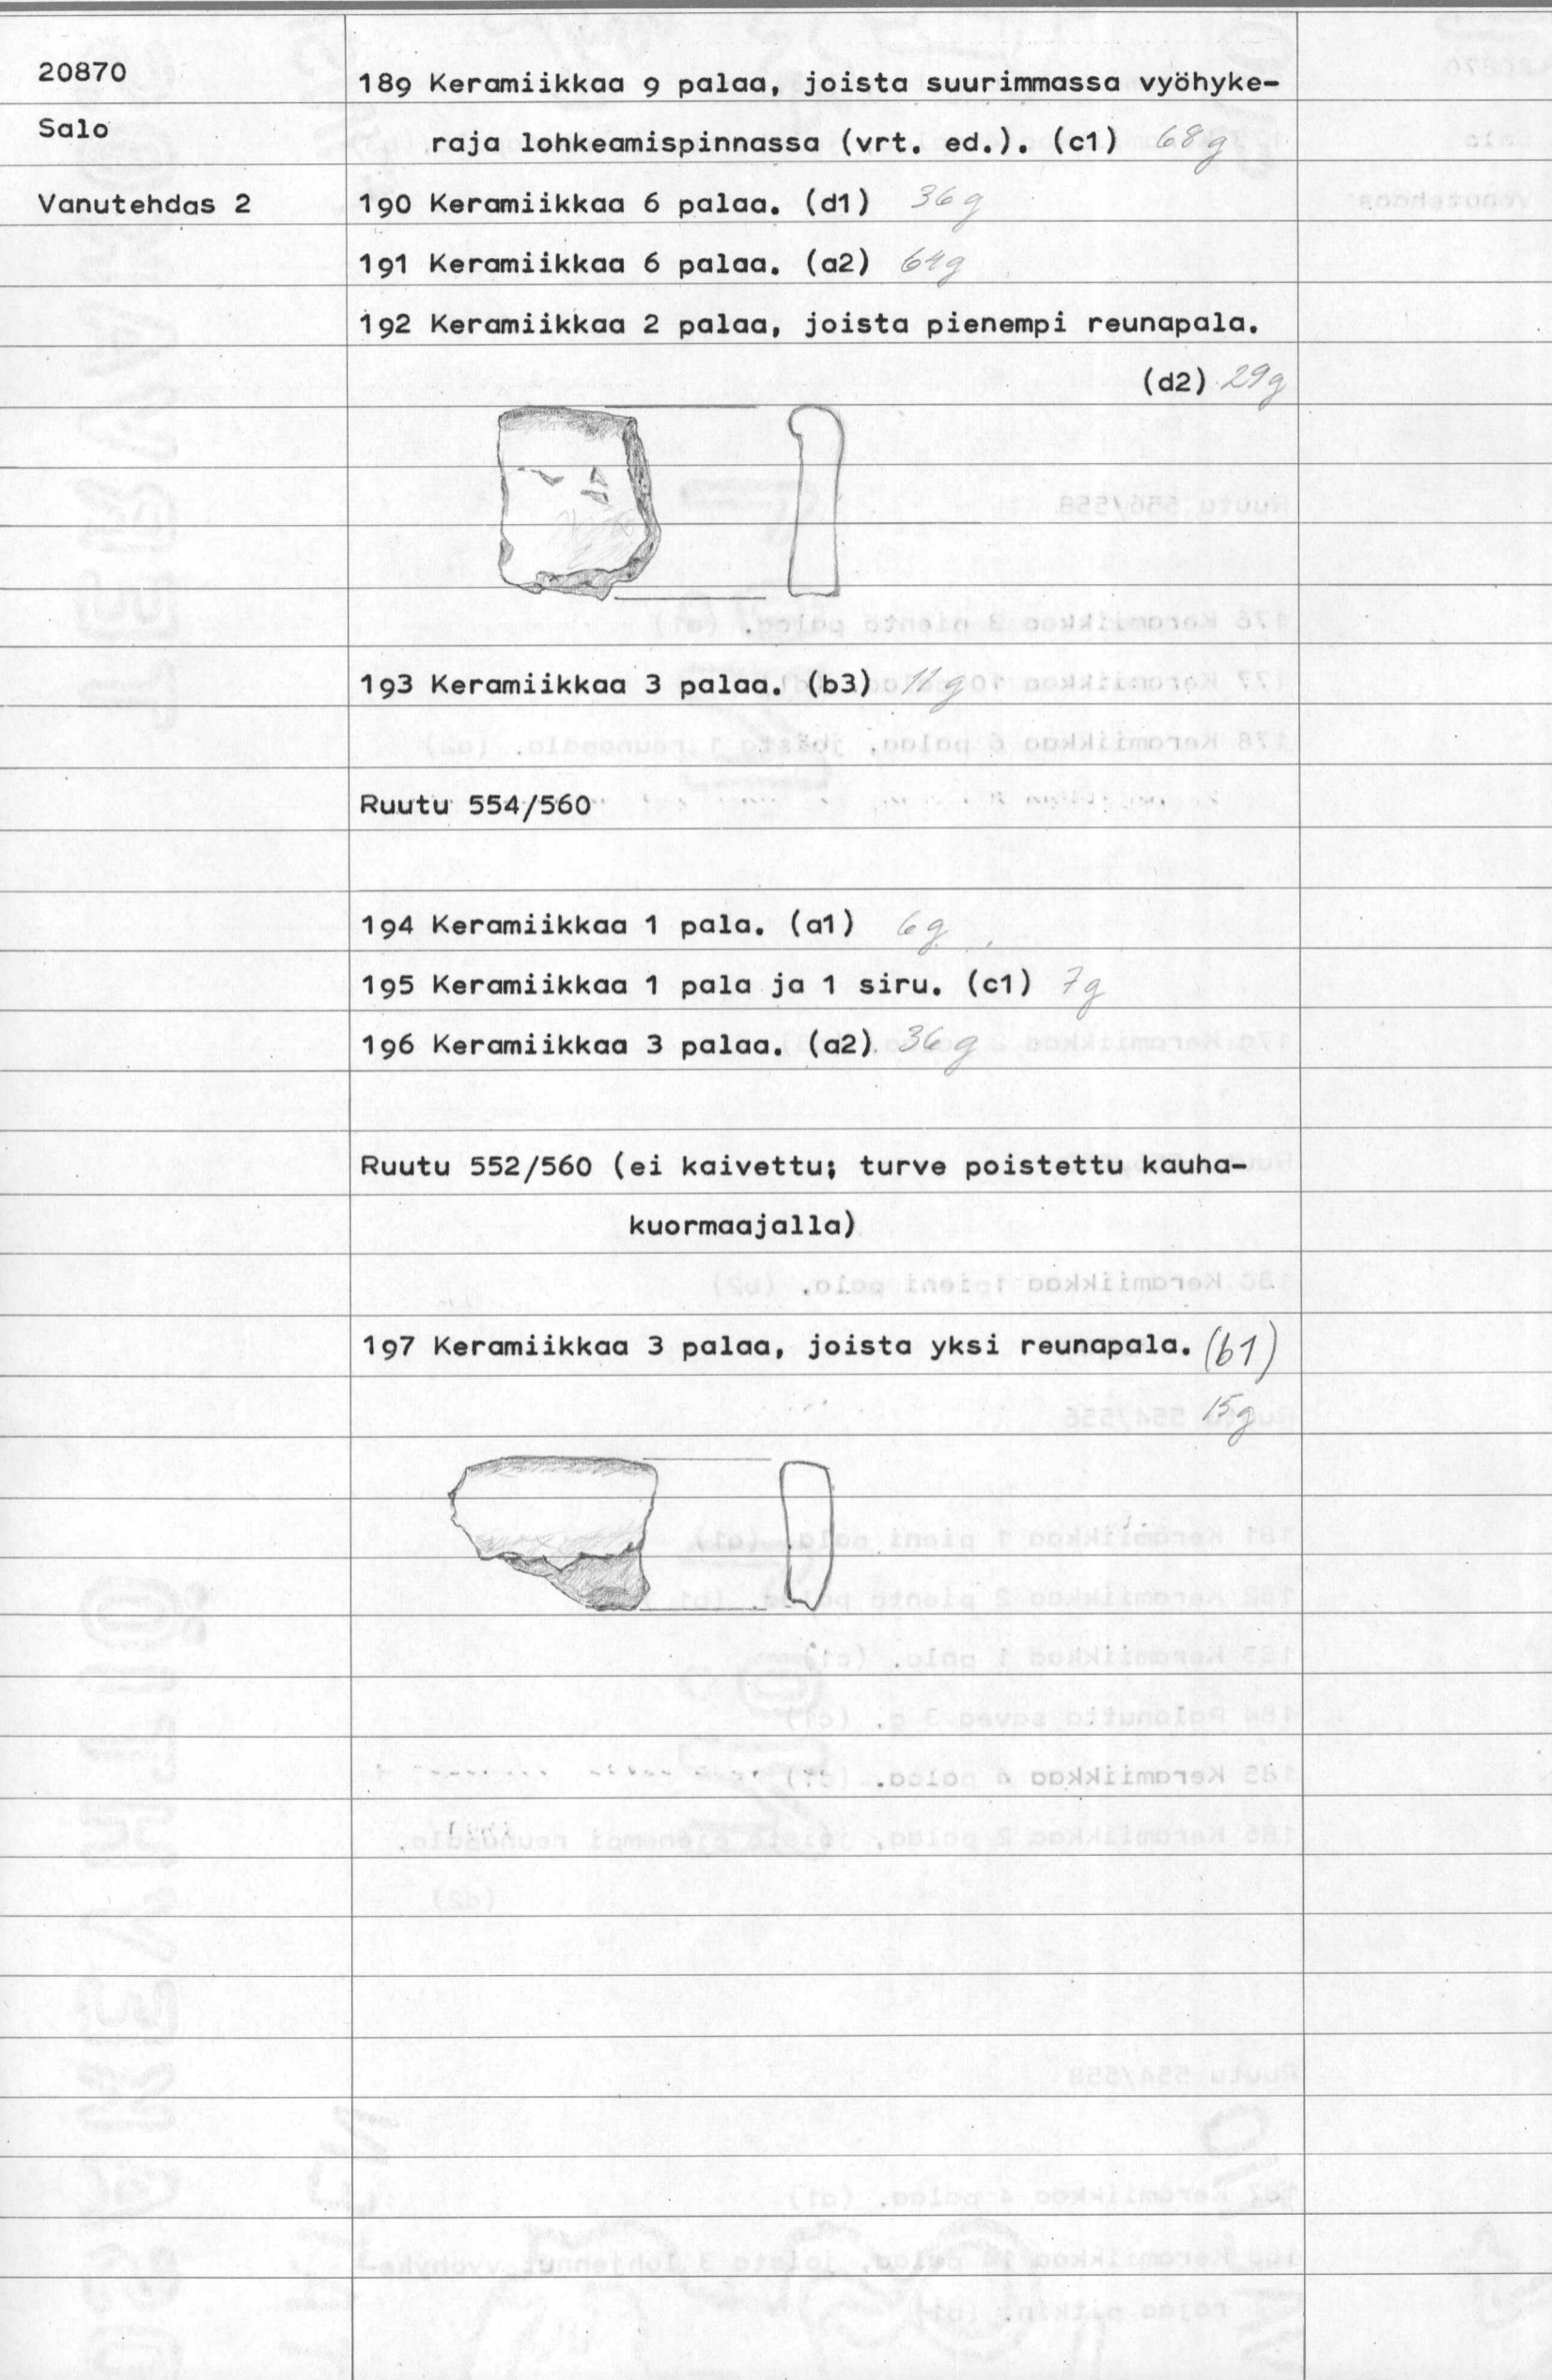 20870
Salo
Vanutehdas 2
189 Keramiikkaa 9 palaa, joista suurimmassa vyöhyke-
raja lohkeamispinnassa (vrt. ed.). (c1) 68g
190 Keramiikkaa 6 palaa. (d1) 36g
191 Keramiikkaa 6 palaa. (a2) 64g
192 Keramiikkaa 2 palaa, joista pienempi reunapala.
(d2) 29g
193 Keramiikkaa 3 palaa. (b3) 11g
Ruutu 554/560
194 Keramiikkaa 1 pala. (a1) 6g
195 Keramiikkaa 1 pala ja 1 siru. (c1) 7g
196 Keramiikkaa 3 palaa. (a2) 36g
Ruutu 552/560 (ei kaivettu; turve poistettu kauha-
kuormaajalla)
197 Keramiikkaa 3 palaa, joista yksi reunapala. (b1)
15g